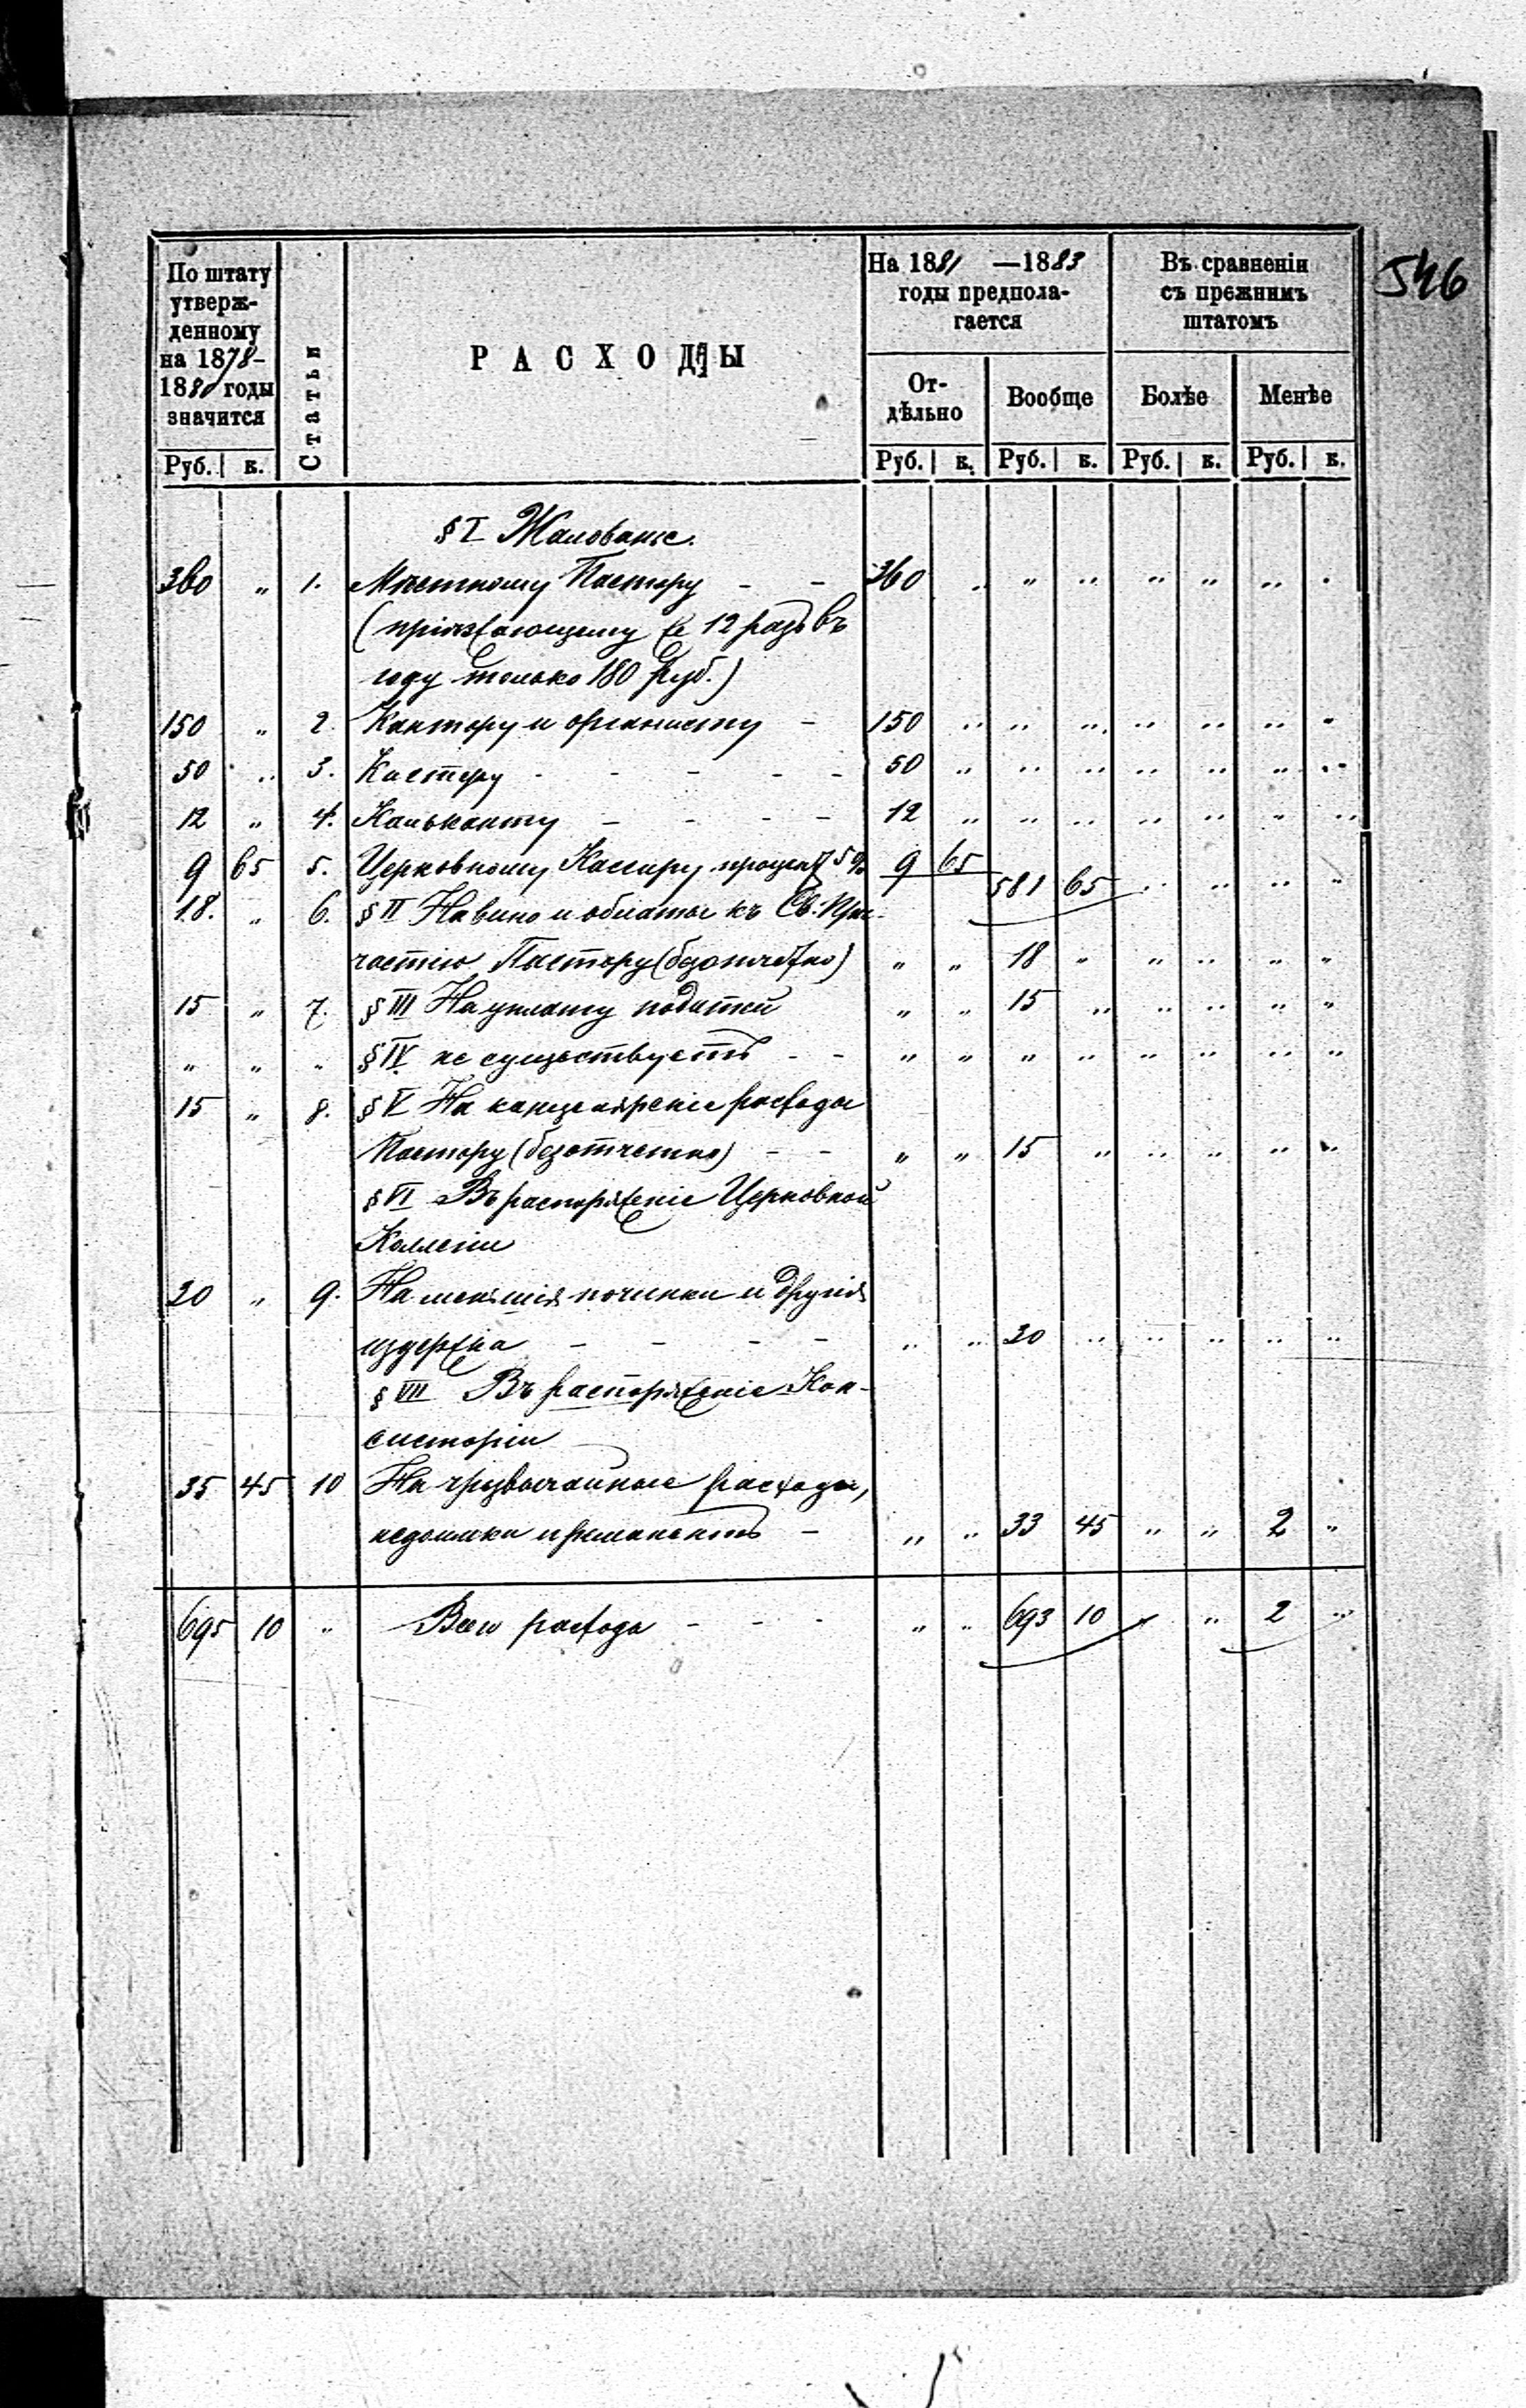 546
По штату утверж-денному на 1878-1880 годы значится
Статьи
РАСХОДЫ
На 1881 —1883 годы предпола-гается
Въ сравненіи съ прежнимъ штатомъ
От-дѣльно Вообще Болѣе Менѣе
Руб. к. Руб. к. Руб. к. Руб. к. Руб. к.
§ I Жалованье.
360 „ 1. Мѣстному Пастору - - 360 „ „ „ „ „ „ „
(пріѣзжающему же 12 разъ въ
году только 180 руб.)
150 „ 2. Кантору и органисту - 150 „ „ „ „ „ „ „
50 „ 3. Кистеру - - - - - 50 „ „ „ „ „ „ „
12 „ 4. Кальканту - - - - 12 „ „ „ „ „ „ „
9 65 5. Церковному Кассиру процент 5% 9 65 581 65 „ „ „ „
18. „ 6. § II На вино и облаты къ Св. При-
частію Пастору (безотчетно) „ „ 18 „ „ „ „ „
15 „ 7. § III На уплату податей „ „ 15 „ „ „ „ „
„ „ „ § IV не существуетъ - - „ „ „ „ „ „ „ „
15 „ 8. § V На канцелярскіе расходы
Пастору (безотчетно) - - „ „ 15 „ „ „ „ „
§ VI Въ распоряженіе Церковной
Коллегіи
30 „ 9. На меньшія починки и другія
издержки - - - - „ „ 30 „ „ „ „ „
§ VII Въ распоряженіе Кон-
систоріи
35 45 10 На чрезвычайные расходы,
недоимки и ремонентъ - „ „ 33 45 „ „ 2 „
695 10 „ Всего расхода - - - „ „ 693 10 „ „ 2 „